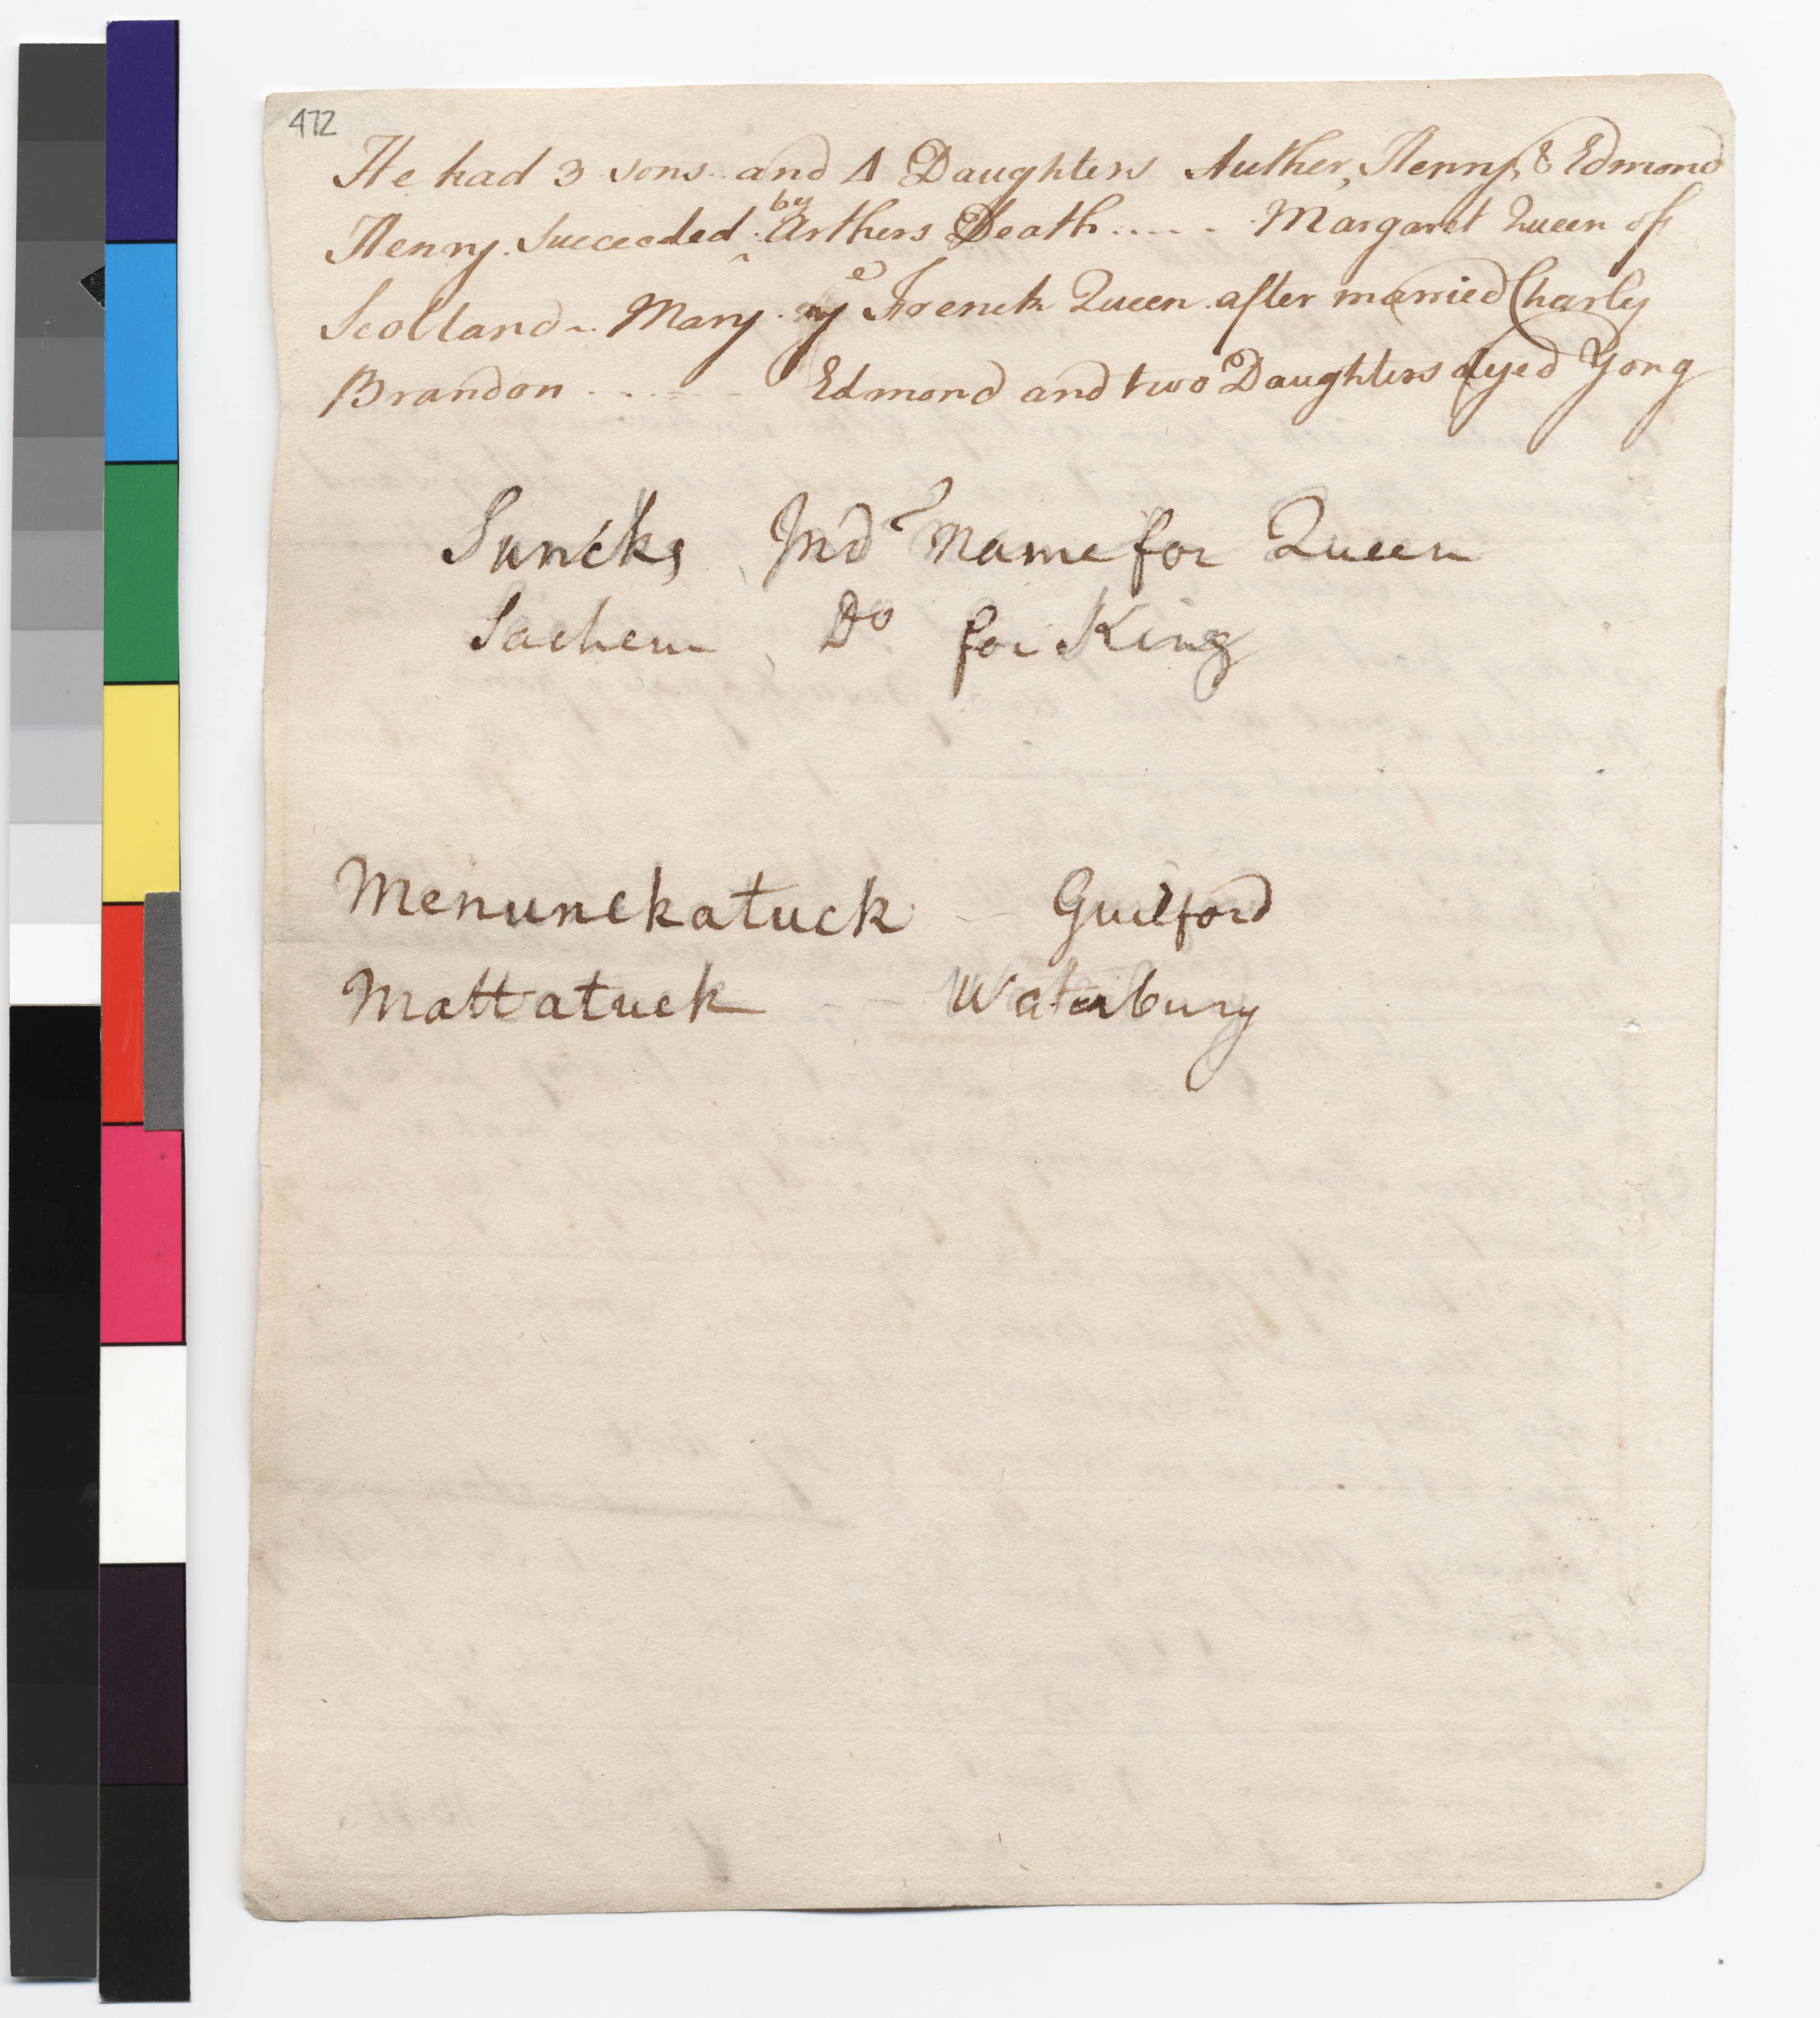 472
He had 3 sons and 4 Daughters Auther, Henry, & Edmond
Henry Succeeded by Arthers Death..... Margaret Queen of
Scottand. Mary ye French Queen after married Charly
Brandon ..... Edmond and two Daughters dyed Yong
Suncks, Ind Name for Queen
Sachem, Do for King
Menunckatuck -- Guilford
Mattatuck -- Waterbury